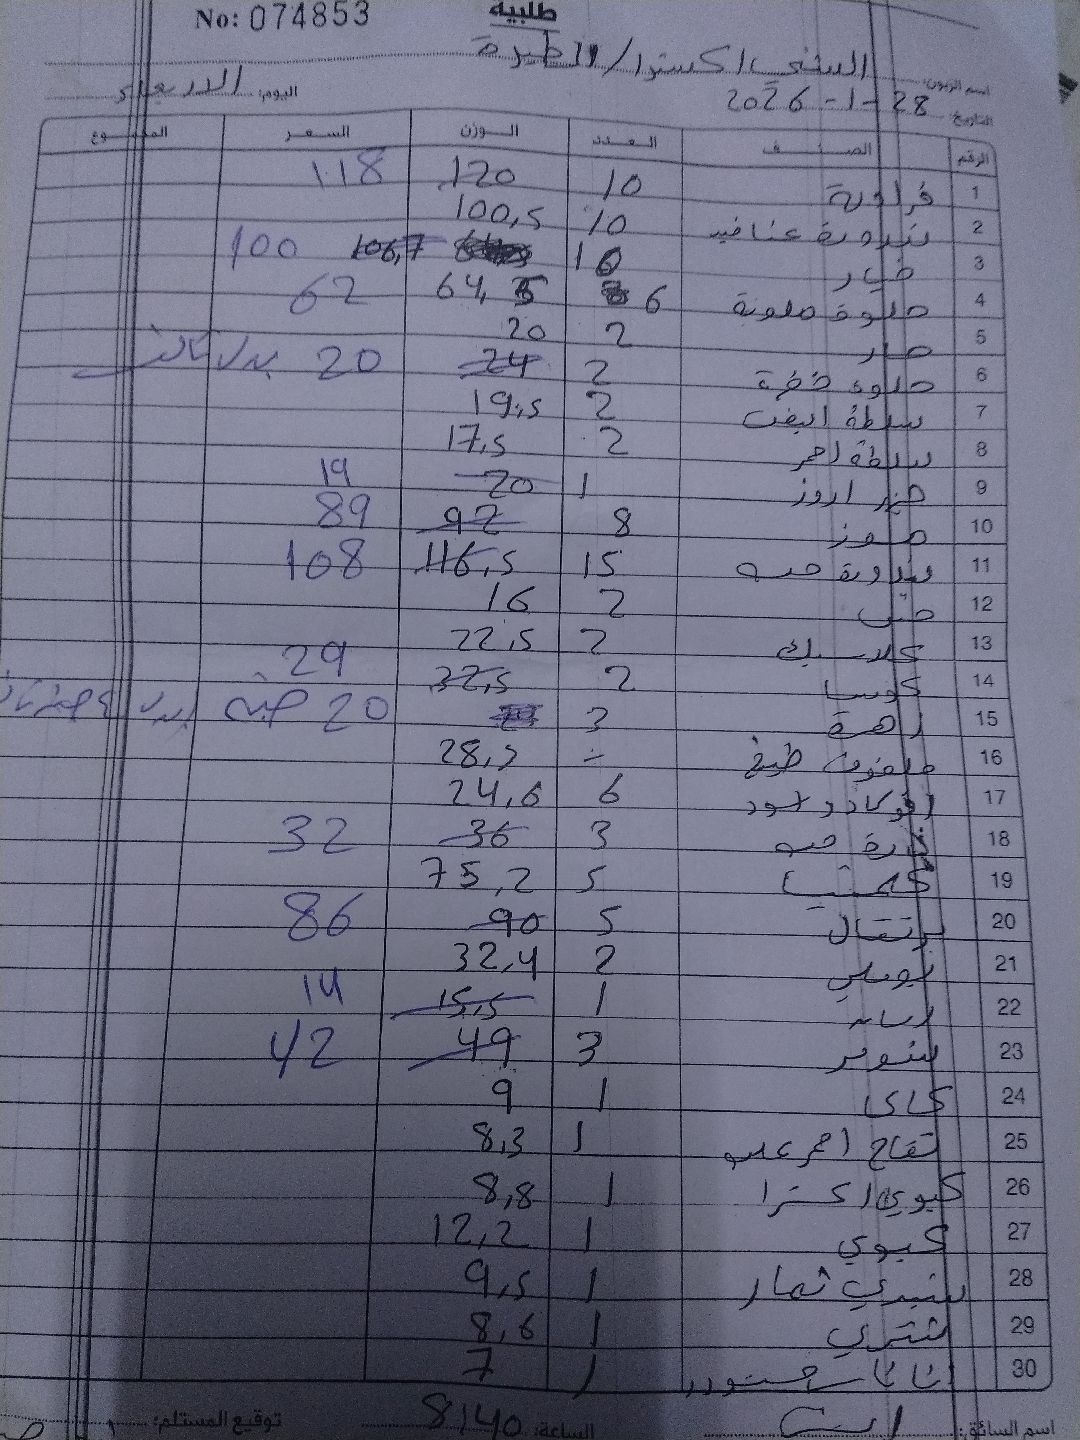 طلبية
No: 074853
اسم الزبون: السنحي اكسترا / الطيرة
التاريخ: 28-1-2026 اليوم: الاربعاء
الرقم الصنف العدد الوزن السعر المجموع
1 فراولة 10 120 118
2 بندورة عناقيد 10 100,5
3 خيار 10 106,7 100
4 حلوة ملونة 6 64,5 62
5 حار 2 20
6 حلوة خضرة 2 24 20 بدل
7 سلطة ابيض 2 19,5
8 سلطة احمر 2 17,5
9 جزر اروز 1 20 19
10 موز 8 92 89
11 بندورة حبه 15 116,5 108
12 2 16
13 كلاسيك 2 22,5
14 كوسا 2 32,5 29
15 زهرة 3 20 حبة بدل
16 ملفوف طبخ 28,5
17 افوكادو اسود 6 24,6
18 حبه 3 36 32
19 كلمنتينا 5 75,2
20 برتقال 5 90 86
21 بوملي 2 32,4
22 1 15,5 14
23 3 49 42
24 كاكا 1 9
25 تفاح احمر علب 1 8,3
26 كيوي اكسترا 1 8,8
27 كيوي 1 12,2
28 1 9,5
29 1 8,6
30 اناناس 1 7
اسم السائق: الساعة: 8:40 توقيع المستلم: